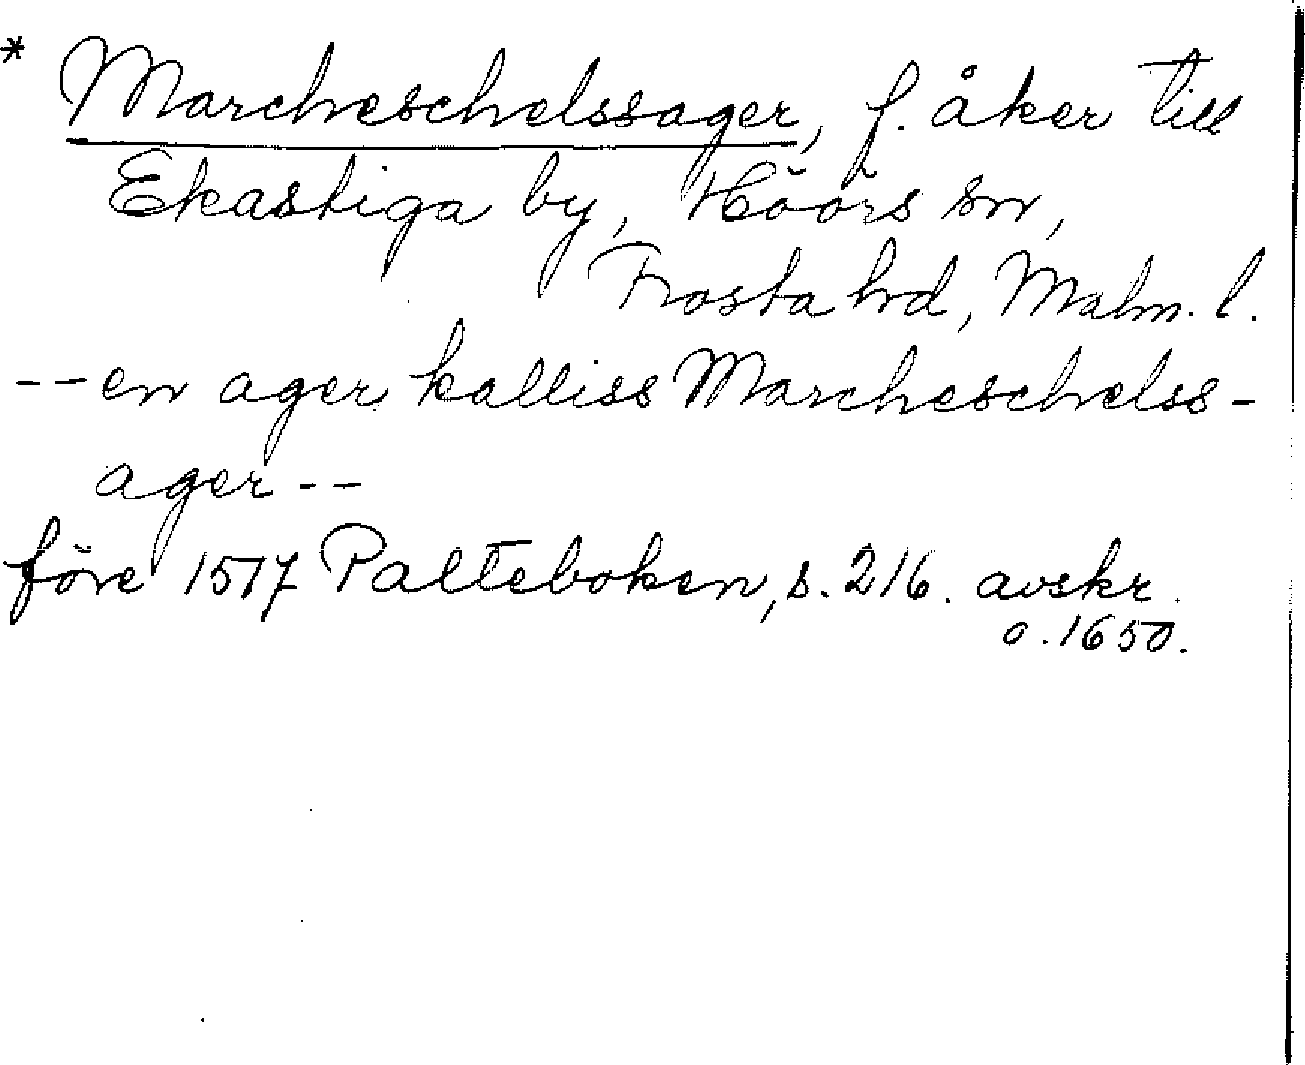 * Marcheschelssager, f. åker till
Ekastiga by, Höörs sn,
Frosta hd, Malm. l.
-- en ager kalliss Marcheschelss-
ager --
före 1517 Palteboken, s. 216. avskr.
o. 1650.